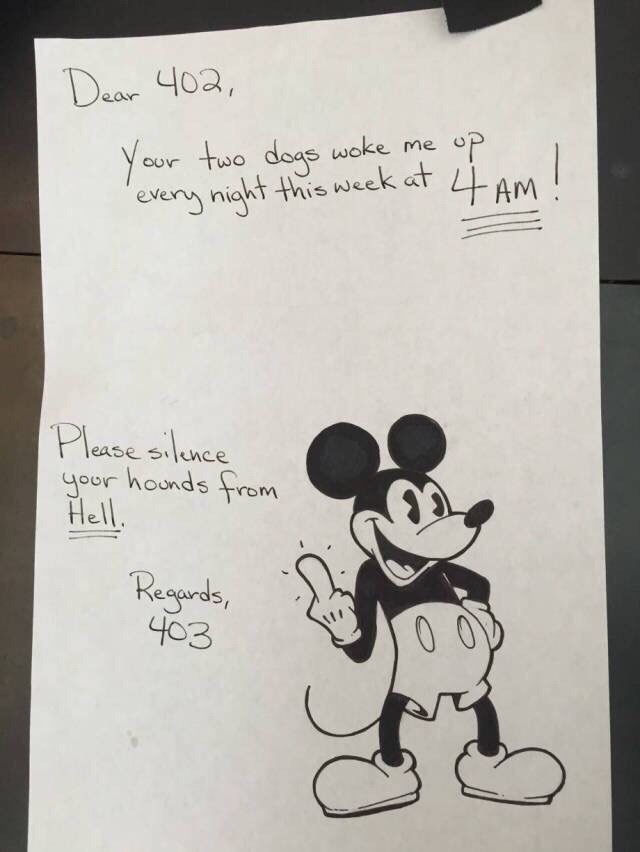 Dear 402,
Your two dogs woke me up
every night this week at 4 AM!
Please silence
your hounds from
Hell.
Regards,
403